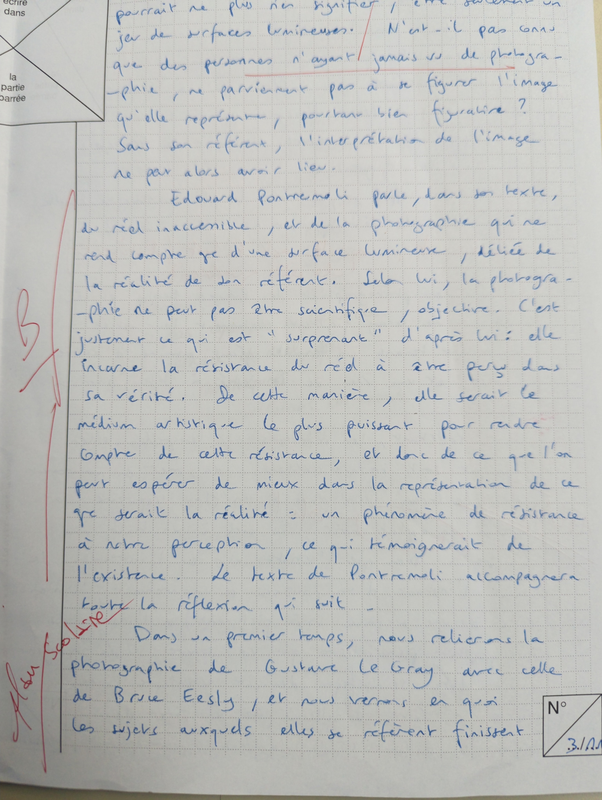 écrire
dans
la
partie
barrée
pourrait ne plus rien signifier, être seulement un
jeu de surfaces lumineuses. N'est-il pas connu
que des personnes n'ayant jamais vu de photogra-
-phie, ne parviennent pas à se figurer l'image
qu'elle représente, pourtant bien figurative ?
Sans son référent, l'interprétation de l'image
ne peut alors avoir lieu.
Edouard Pontremoli parle, dans son texte,
du réel inaccessible, et de la photographie qui ne
rend compte que d'une surface lumineuse, déliée de
la réalité de son référent. Selon lui, la photogra-
-phie ne peut pas être scientifique, objective. C'est
justement ce qui est "surprenant" d'après lui : elle
incarne la résistance du réel à être perçu dans
sa vérité. De cette manière, elle serait le
médium artistique le plus puissant pour rendre
compte de cette résistance, et donc de ce que l'on
peut espérer de mieux dans la représentation de ce
que serait la réalité : un phénomène de résistance
à notre perception, ce qui témoignerait de
l'existence. Le texte de Pontremoli accompagnera
toute la réflexion qui suit.
Dans un premier temps, nous relierons la
photographie de Gustave Le Gray avec celle
de Bruce Eesly, et nous verrons en quoi
les sujets auxquels elles se réfèrent finissent
B
scolaire
N°
3/11